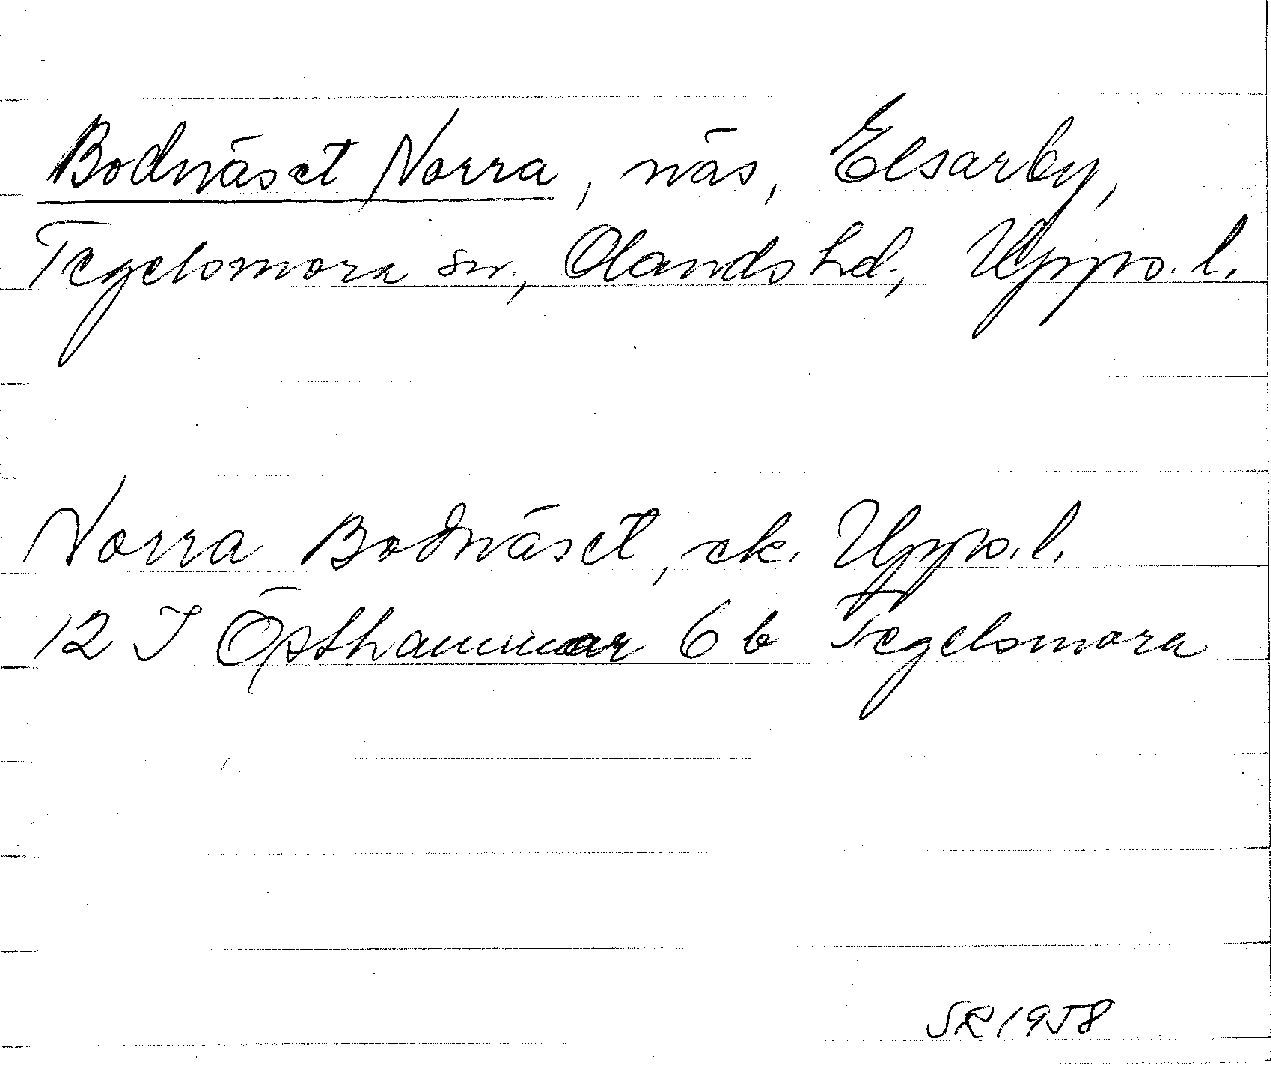 Bodnäset Norra, näs, Elsarby,
Tegelsmora sn, Olands hd, Upps. l.
Norra Bodnäset, ek. Upps. l.
12 I Östhammar 6 b Tegelsmora
SR 1958